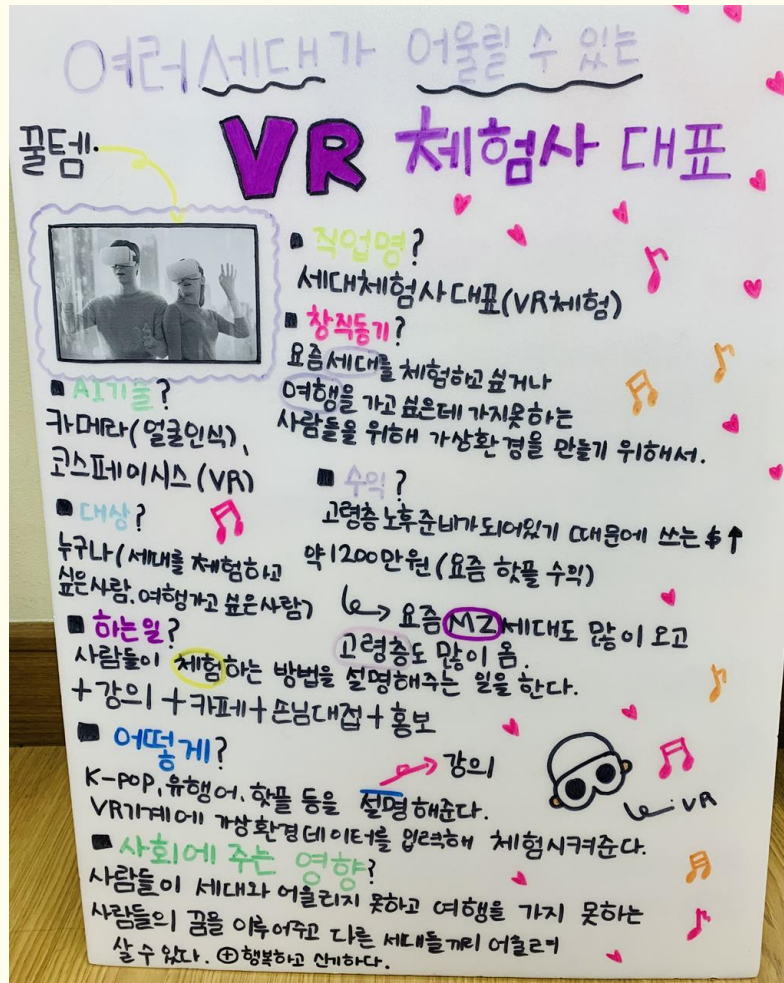 여러세대가 어울릴 수 있는
VR 체험사 대표
꿀템
■ 직업명?
세대체험사대표(VR체험)
■ 창직동기?
요즘세대를 체험하고 싶거나
여행을 가고 싶은데 가지못하는
사람들을 위해 가상환경을 만들기 위해서.
■ AI기술?
카메라(얼굴인식),
코스페이시스(VR)
■ 수익?
고령층 노후준비가 되어있기 때문에 쓰는 $↑
약 1200만원(요즘 핫플 수익)
↳ 요즘 MZ세대도 많이 오고
고령층도 많이 옴.
■ 대상?
누구나(세대를 체험하고
싶은사람, 여행가고 싶은사람)
■ 하는일?
사람들이 체험하는 방법을 설명해주는 일을 한다.
+강의+카페+손님대접+홍보
■ 어떻게?
→ 강의
K-POP, 유행어, 핫플 등을 설명해준다.
VR기계에 가상환경데이터를 입력해 체험시켜준다.
VR
■ 사회에 주는 영향?
사람들이 세대와 어울리지 못하고 여행을 가지 못하는
사람들의 꿈을 이루어주고 다른 세대들끼리 어울려
살 수 있다. ⊕행복하고 신기하다.